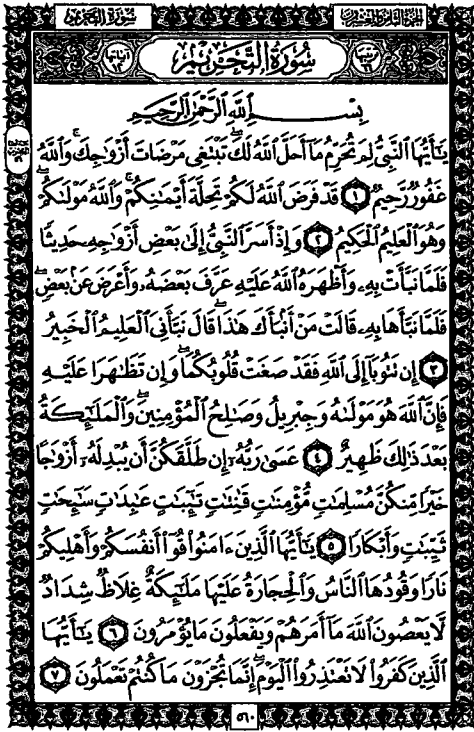 سُورَةُ التَّحْرِيمِ
الجُزْءُ الثَّامِنُ وَالعِشْرُونَ
سُورَةُ التَّحْرِيمِ
ترتيبها ٦٦
آياتها ١٢
بِسْمِ ٱللَّهِ ٱلرَّحْمَٰنِ ٱلرَّحِيمِ
يَٰٓأَيُّهَا ٱلنَّبِىُّ لِمَ تُحَرِّمُ مَآ أَحَلَّ ٱللَّهُ لَكَ ۖ تَبْتَغِى مَرْضَاتَ أَزْوَٰجِكَ ۚ وَٱللَّهُ
غَفُورٌ رَّحِيمٌ ١ قَدْ فَرَضَ ٱللَّهُ لَكُمْ تَحِلَّةَ أَيْمَٰنِكُمْ ۚ وَٱللَّهُ مَوْلَىٰكُمْ ۖ
وَهُوَ ٱلْعَلِيمُ ٱلْحَكِيمُ ٢ وَإِذْ أَسَرَّ ٱلنَّبِىُّ إِلَىٰ بَعْضِ أَزْوَٰجِهِۦ حَدِيثًا
فَلَمَّا نَبَّأَتْ بِهِۦ وَأَظْهَرَهُ ٱللَّهُ عَلَيْهِ عَرَّفَ بَعْضَهُۥ وَأَعْرَضَ عَنۢ بَعْضٍ ۖ
فَلَمَّا نَبَّأَهَا بِهِۦ قَالَتْ مَنْ أَنۢبَأَكَ هَٰذَا ۖ قَالَ نَبَّأَنِىَ ٱلْعَلِيمُ ٱلْخَبِيرُ
٣ إِن تَتُوبَآ إِلَى ٱللَّهِ فَقَدْ صَغَتْ قُلُوبُكُمَا ۖ وَإِن تَظَٰهَرَا عَلَيْهِ
فَإِنَّ ٱللَّهَ هُوَ مَوْلَىٰهُ وَجِبْرِيلُ وَصَٰلِحُ ٱلْمُؤْمِنِينَ ۖ وَٱلْمَلَٰٓئِكَةُ
بَعْدَ ذَٰلِكَ ظَهِيرٌ ٤ عَسَىٰ رَبُّهُۥٓ إِن طَلَّقَكُنَّ أَن يُبْدِلَهُۥٓ أَزْوَٰجًا
خَيْرًا مِّنكُنَّ مُسْلِمَٰتٍ مُّؤْمِنَٰتٍ قَٰنِتَٰتٍ تَٰٓئِبَٰتٍ عَٰبِدَٰتٍ سَٰٓئِحَٰتٍ
ثَيِّبَٰتٍ وَأَبْكَارًا ٥ يَٰٓأَيُّهَا ٱلَّذِينَ ءَامَنُوا۟ قُوٓا۟ أَنفُسَكُمْ وَأَهْلِيكُمْ
نَارًا وَقُودُهَا ٱلنَّاسُ وَٱلْحِجَارَةُ عَلَيْهَا مَلَٰٓئِكَةٌ غِلَاظٌ شِدَادٌ
لَّا يَعْصُونَ ٱللَّهَ مَآ أَمَرَهُمْ وَيَفْعَلُونَ مَا يُؤْمَرُونَ ٦ يَٰٓأَيُّهَا
ٱلَّذِينَ كَفَرُوا۟ لَا تَعْتَذِرُوا۟ ٱلْيَوْمَ ۖ إِنَّمَا تُجْزَوْنَ مَا كُنتُمْ تَعْمَلُونَ ٧
٥٦٠